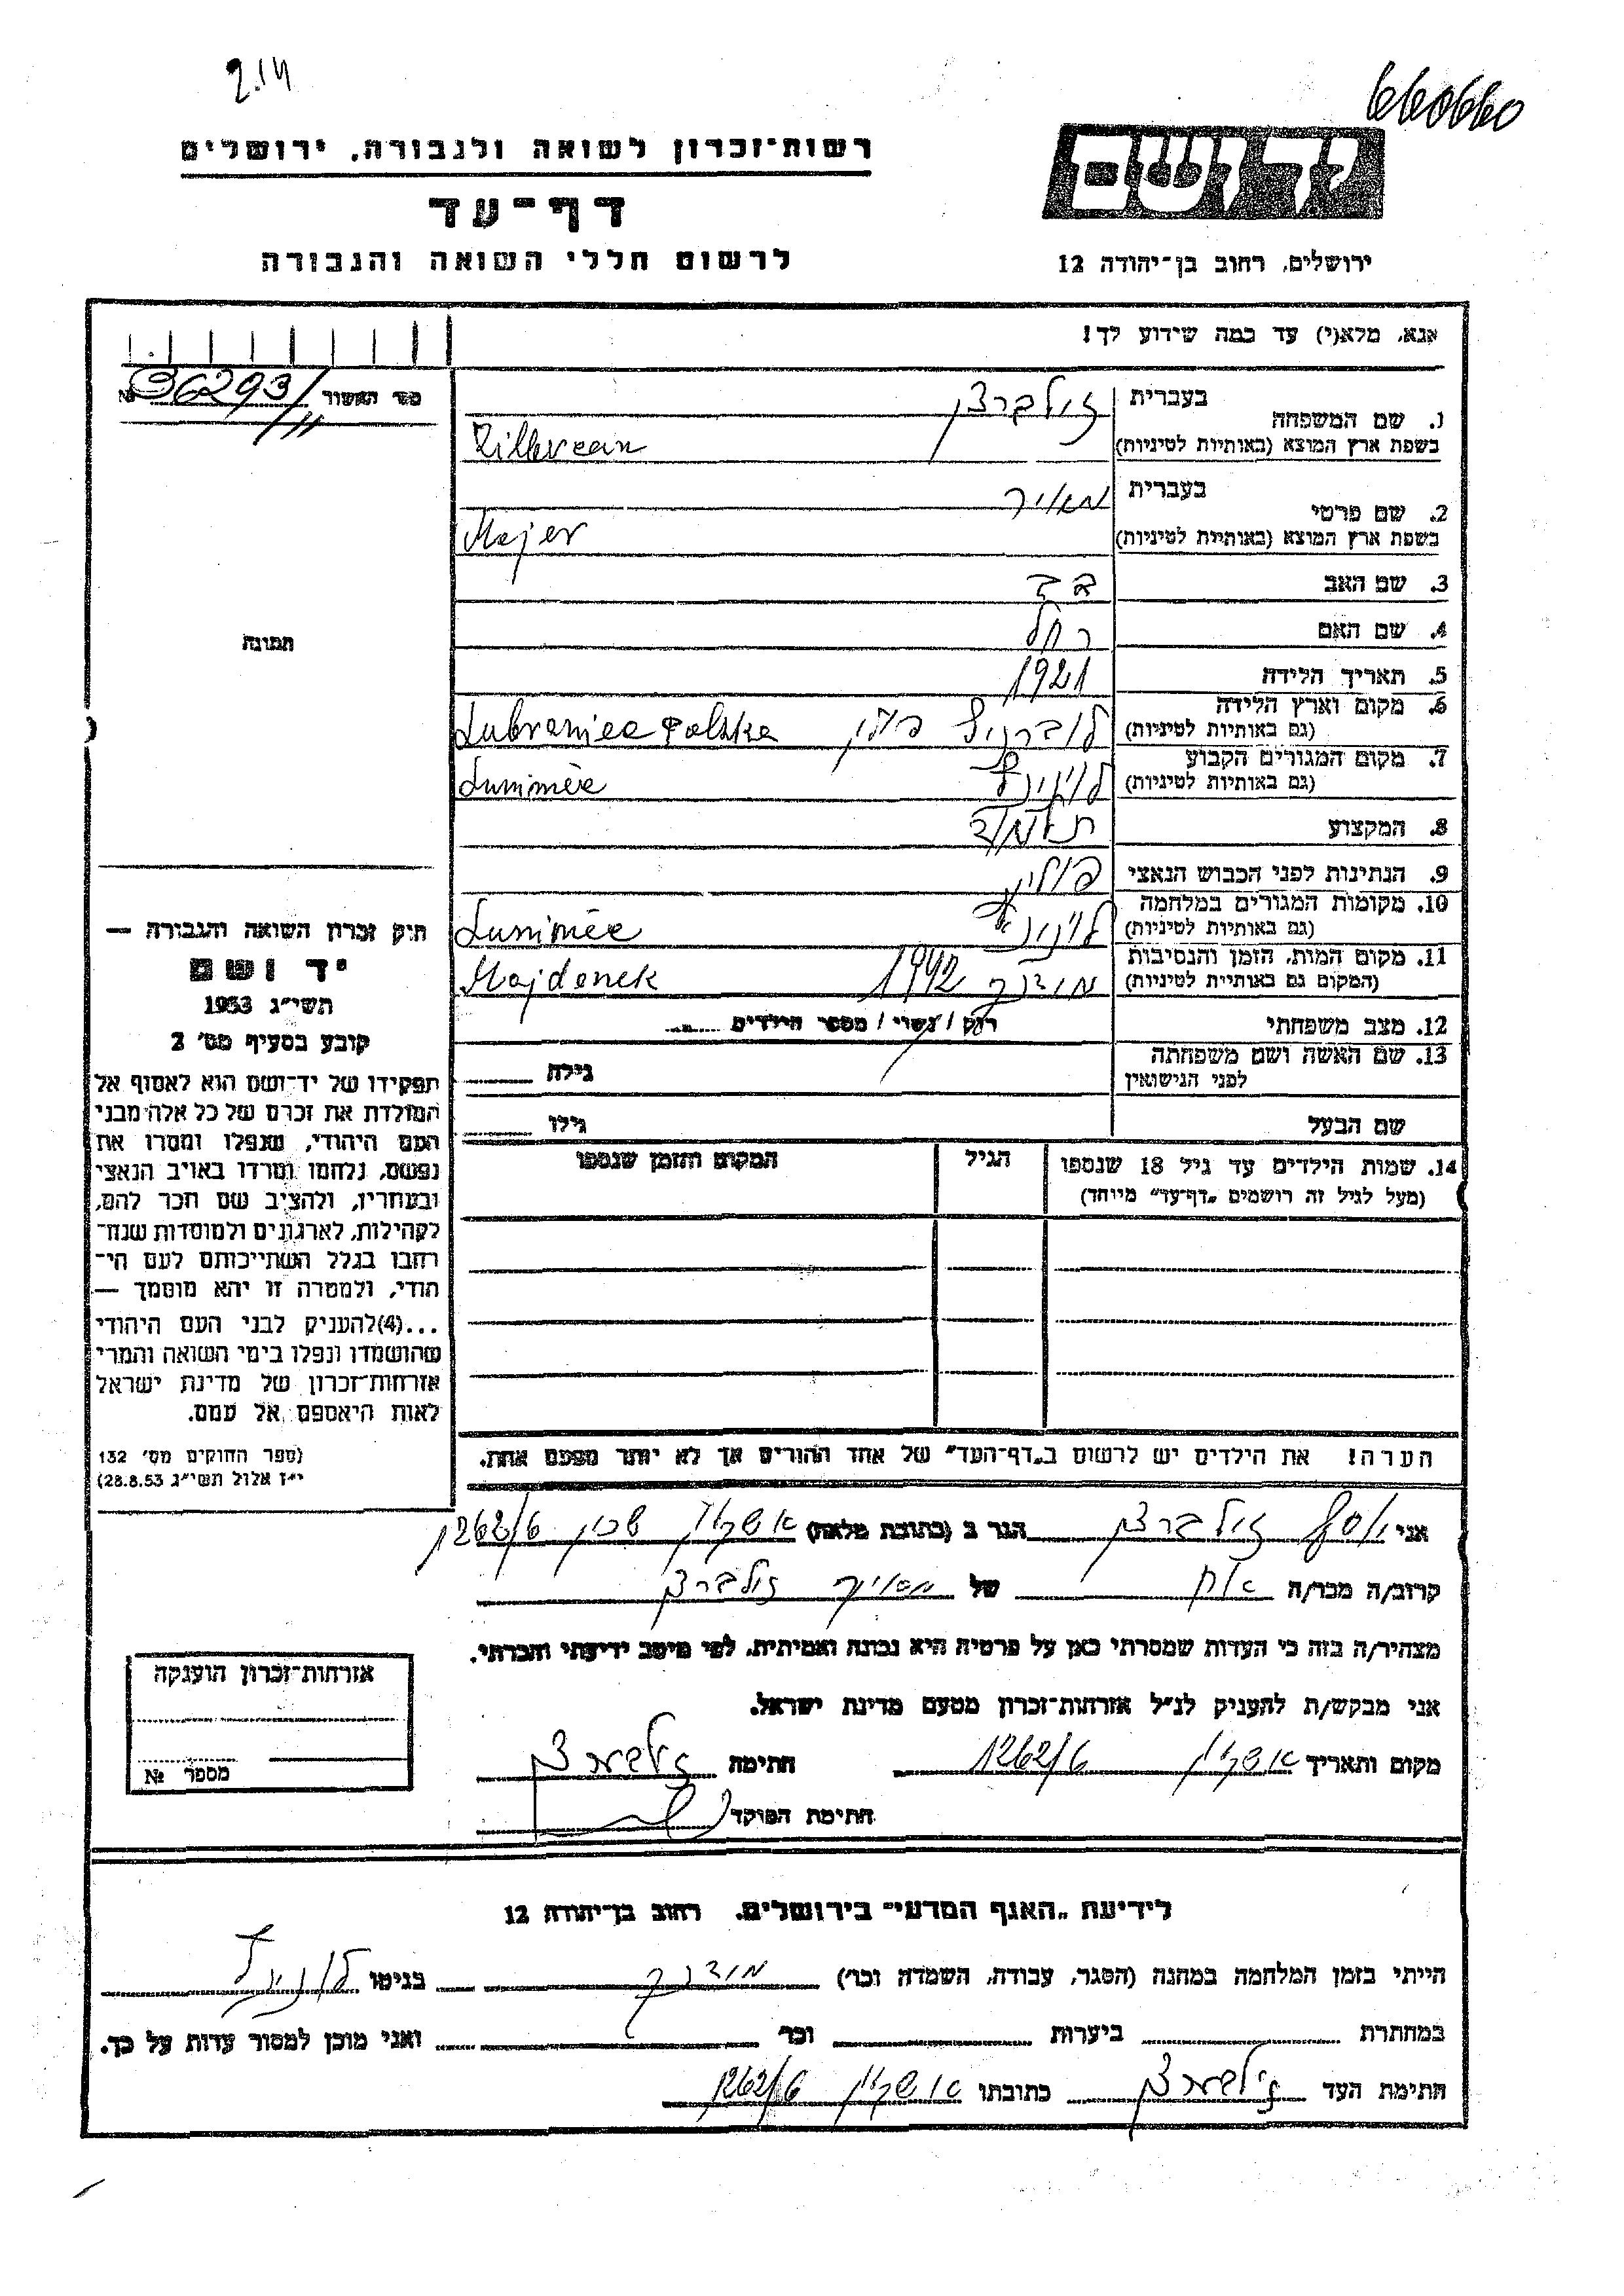 2.14
660660
רשות־זכרון לשואה ולגבורה, ירושלים
דף־עד
לרשום חללי השואה והגבורה
יד ושם
ירושלים, רחוב בן־יהודה 12
אנא, מלא(י) עד כמה שידוע לך!
מס' האשור № 36293/
1. שם המשפחה
בעברית זילברצן
בשפת ארץ המוצא (באותיות לטיניות) Zilbercan
2. שם פרטי
בעברית מאיר
בשפת ארץ המוצא (באותיות לטיניות) Majer
3. שם האב
4. שם האם רחל
5. תאריך הלידה 1921
6. מקום וארץ הלידה
(גם באותיות לטיניות) פולין Lubraniec Polska
7. מקום המגורים הקבוע
(גם באותיות לטיניות)
8. המקצוע תלמיד
9. הנתינות לפני הכבוש הנאצי פולין
10. מקומות המגורים במלחמה
(גם באותיות לטיניות)
11. מקום המות, הזמן והנסיבות
(המקום גם באותיות לטיניות) מידנק 1942 Majdanek
12. מצב משפחתי רווק / נשוי / מספר הילדים
13. שם האשה ושם משפחתה
לפני הנישואין
גילה
שם הבעל גילו
14. שמות הילדים עד גיל 18 שנספו
(מעל לגיל זה רושמים „דף־עד" מיוחד)
הגיל
המקום והזמן שנספו
הערה! את הילדים יש לרשום ב„דף־העד" של אחד ההורים אך לא יותר מפעם אחת.
תמונה
חוק זכרון השואה והגבורה —
יד ושם
תשי"ג 1953
קובע בסעיף מס' 2
תפקידו של יד־ושם הוא לאסוף אל
המולדת את זכרם של כל אלה מבני
העם היהודי, שנפלו ומסרו את
נפשם, נלחמו ומרדו באויב הנאצי
ובעוזריו, ולהציב שם וזכר להם,
לקהילות, לארגונים ולמוסדות שנח־
רבו בגלל השתייכותם לעם הי־
הודי, ולמטרה זו יהא מוסמך —
...(4)להעניק לבני העם היהודי
שהושמדו ונפלו בימי השואה והמרי
אזרחות־זכרון של מדינת ישראל
לאות היאספם אל עמם.
(ספר החוקים מס' 132
י"ז אלול תשי"ג 28.8.53)
אני יוסף זילברצן הגר ב (כתובת מלאה) אשקלון שכון 1262/6
קרוב/ה מכר/ה אח של מאיר זילברצן
מצהיר/ה בזה כי העדות שמסרתי כאן על פרטיה היא נכונה ואמיתית, לפי מיטב ידיעתי והכרתי.
אני מבקש/ת להעניק לנ"ל אזרחות־זכרון מטעם מדינת ישראל.
מקום ותאריך אשקלון 1262/6 חתימה זילברצן
חתימת הפוקד
אזרחות־זכרון הוענקה
מספר №
לידיעת „האגף המדעי" בירושלים, רחוב בן־יהודה 12
הייתי בזמן המלחמה במחנה (הסגר, עבודה, השמדה וכו') מידנק בגיטו
במחתרת ביערות וכו' ואני מוכן למסור עדות על כך.
חתימת העד זילברצן כתובתו אשקלון 1262/6